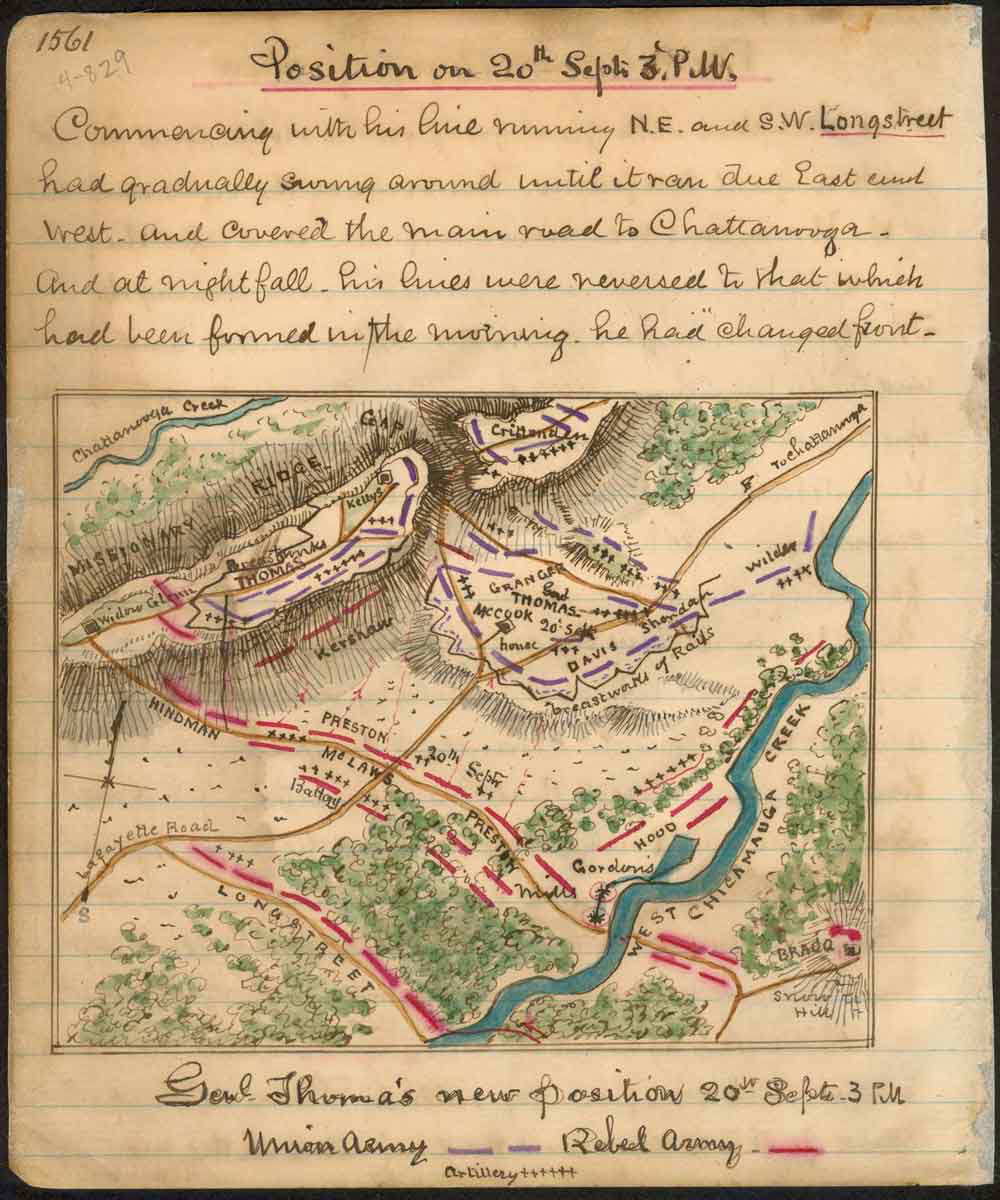 1561
4-829
Position on 20th Septr 3. P.M.
Commencing with his line running N.E. and S.W. Longstreet
had gradually swung around until it ran due East and
West - and covered the main road to Chattanooga -
And at nightfall - his lines were reversed to that which
had been formed in the morning. he had "changed front -
Chattanooga Creek
GAP
Crittenden
To Chattanooga
MISSIONARY RIDGE
Kellys
Breastworks
THOMAS
Widow Glenn
Kershaw
Wilder
GRANGER
Genl
THOMAS
McCOOK 20 Sept
house
Sheridan
DAVIS
breastworks of Rails
HINDMAN
PRESTON
McLAWS
20th Septr
Battery
PRESTON
HOOD
Gordon's
Mills
Lafayette Road
S
LONGSTREET
WEST CHICAMAUGA CREEK
BRAGG
Snow
Hill
Genl Thomas's new position 20th Septr - 3 PM
Union Army
Rebel Army
Artillery ++++++